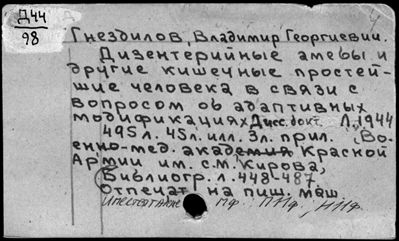 Д44
98
Гнездилов, Владимир Георгиевич.
Дизентерийные амебы и
другие кишечные простей-
шие человека в связи с
вопросом об адаптивных
модификациях Дисс. докт. Л., 1944
495 л. 45 л. илл. 3 л. прил. Во-
енно-мед. академия Красной
Армии им. С.М. Кирова,
Библиогр. л. 448-487
Отпечат. на пиш. маш.